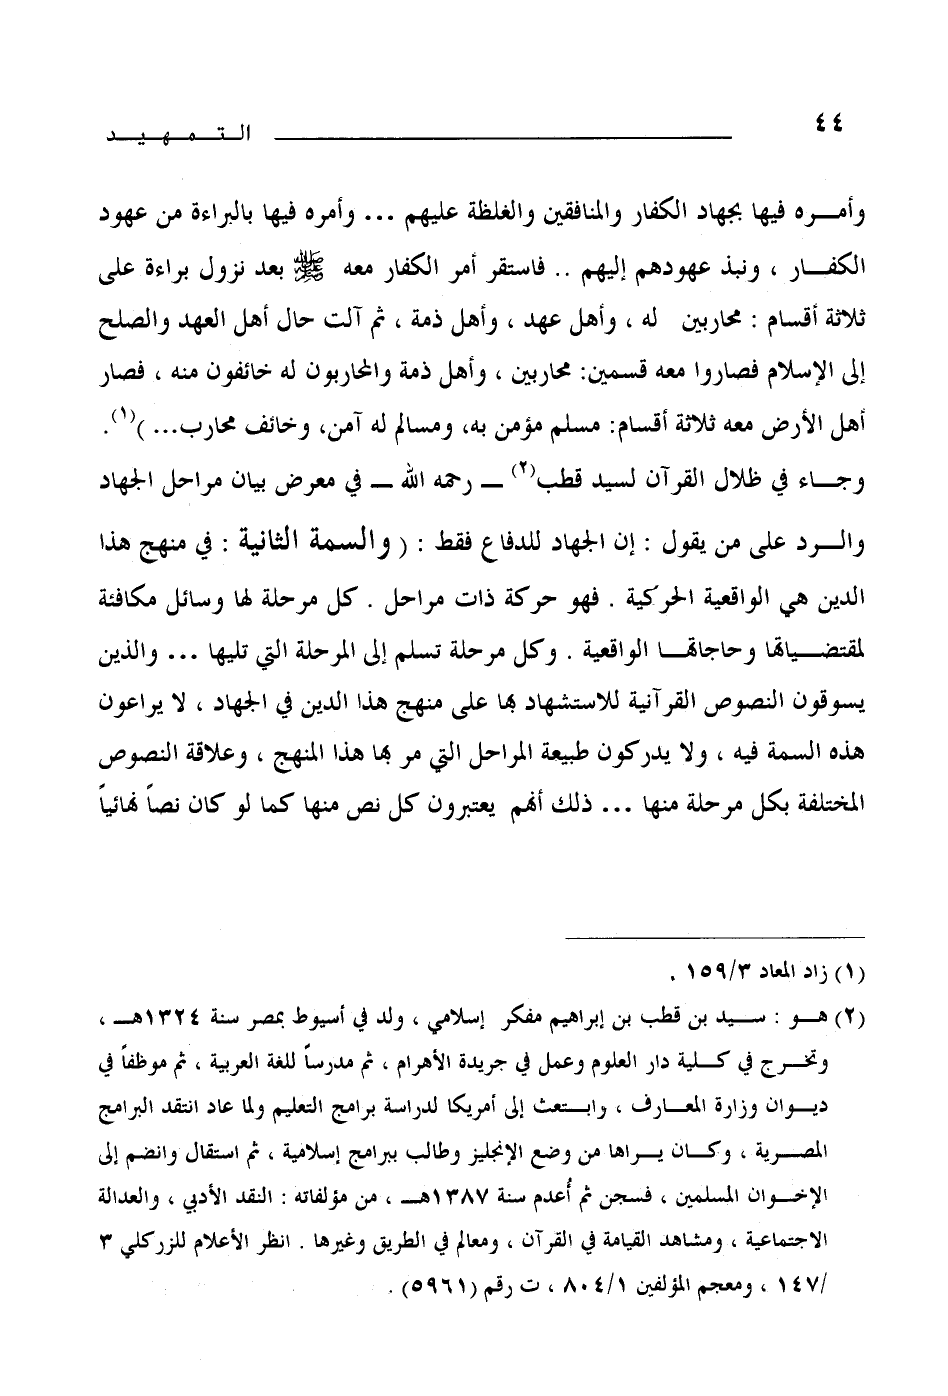 ٤٤ التمهيد
وأمره فيها بجهاد الكفار والمنافقين والغلظة عليهم ... وأمره فيها بالبراءة من عهود
الكفار ، ونبذ عهودهم إليهم .. فاستقر أمر الكفار معه ﷺ بعد نزول براءة على
ثلاثة أقسام : محاربين له ، وأهل عهد ، وأهل ذمة ، ثم آلت حال أهل العهد والصلح
إلى الإسلام فصاروا معه قسمين: محاربين ، وأهل ذمة والمحاربون له خائفون منه ، فصار
أهل الأرض معه ثلاثة أقسام: مسلم مؤمن به، ومسالم له آمن، وخائف محارب... )(١).
وجاء في ظلال القرآن لسيد قطب(٢) – رحمه الله – في معرض بيان مراحل الجهاد
والرد على من يقول : إن الجهاد للدفاع فقط : ( والسمة الثانية : في منهج هذا
الدين هي الواقعية الحركية . فهو حركة ذات مراحل . كل مرحلة لها وسائل مكافئة
لمقتضياتها وحاجاتها الواقعية . وكل مرحلة تسلم إلى المرحلة التي تليها ... والذين
يسوقون النصوص القرآنية للاستشهاد بها على منهج هذا الدين في الجهاد ، لا يراعون
هذه السمة فيه ، ولا يدركون طبيعة المراحل التي مر بها هذا المنهج ، وعلاقة النصوص
المختلفة بكل مرحلة منها ... ذلك أنهم يعتبرون كل نص منها كما لو كان نصاً نهائياً
(١) زاد المعاد ١٥٩/٣ .
(٢) هو : سيد بن قطب بن إبراهيم مفكر إسلامي ، ولد في أسيوط بمصر سنة ١٣٢٤هـ ،
وتخرج في كلية دار العلوم وعمل في جريدة الأهرام ، ثم مدرساً للغة العربية ، ثم موظفاً في
ديوان وزارة المعارف ، وابتعث إلى أمريكا لدراسة برامج التعليم ولما عاد انتقد البرامج
المصرية ، وكان يراها من وضع الإنجليز وطالب ببرامج إسلامية ، ثم استقال وانضم إلى
الإخوان المسلمين ، فسجن ثم أُعدم سنة ١٣٨٧هـ ، من مؤلفاته : النقد الأدبي ، والعدالة
الاجتماعية ، ومشاهد القيامة في القرآن ، ومعالم في الطريق وغيرها . انظر الأعلام للزركلي ٣
/١٤٧ ، ومعجم المؤلفين ٨٠٤/١ ، ت رقم (٥٩٦١) .